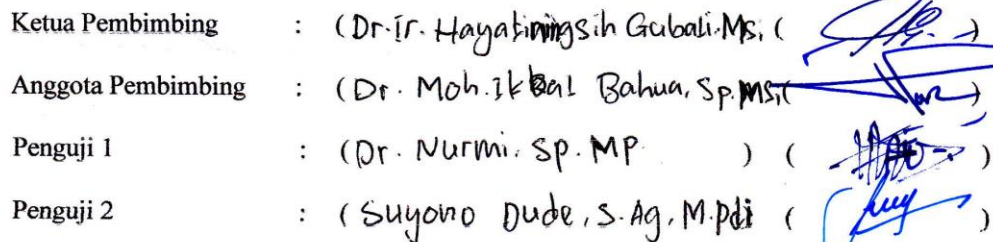 Ketua Pembimbing : (Dr. Ir. Hayatiningsih Gubali. Ms, ( )
Anggota Pembimbing : (Dr. Moh. Ikbal Bahua, Sp. MS, ( )
Penguji 1 : (Dr. Nurmi. Sp. MP ) ( )
Penguji 2 : ( Suyono Dude, S. Ag, M. Pdi ( )